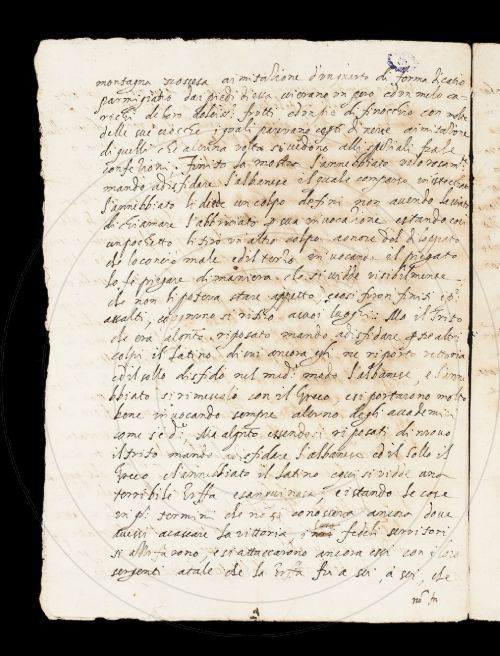 montagna scoscesa a imitatione d'un quarto di forma di cacio
parmigiano dai piedi di essa un pero ed un melo ca
richi de loro dolcissi frutti ed un pie di finocchio con molte
delle sue ciocche i quali parevano cosi di neve a imitatione
di quelli che alcuna volta si vedono alli spetiali fra le
confetioni. Finita la mostra l'annebbiato valorosam.te
mandò a disfidare l'albanese il quale comparso
l'annebbiato li diede un colpo de fini non avendo lasciato
di chiamare l'abbruciato in sua invocatione e stando così
un pochetto li tirò un altro colpo a onore del
lo conciò male ed il terzo invocando il piegato
lo fe piegare di maniera che si vidde visibilmente
che non li poteva stare appetto, e così furon finiti
assalti, ed ognuno si ritirò a suoi luoghi. Ma il Tristo
che era alquanto riposato mandò a disfidare a tre altri
colpi il latino di cui ancora egli ne riportò vittoria
ed il sollo disfidò nel med.mo modo l'albanese, e l'anne
bbiato si rimescolò con il Greco, e si portarono molto
bene invocando sempre alcuno degli accademici
come s'è d.o Ma alquanto essendosi riposati di nuovo
il tristo mandò a disfidare l'albanese ed il sollo il
Greco e l'annebbiato il latino e qui si vidde una
terribile zuffa e sanguinosa, e stando le cose
in qsti termini che no si conosceva ancora dove
avessi a cascare la vittoria i fedeli servitori
si affrontorono, e si attaccarono ancora essi con i loro
sergenti a tale che la zuffa fu a sei, a sei, che